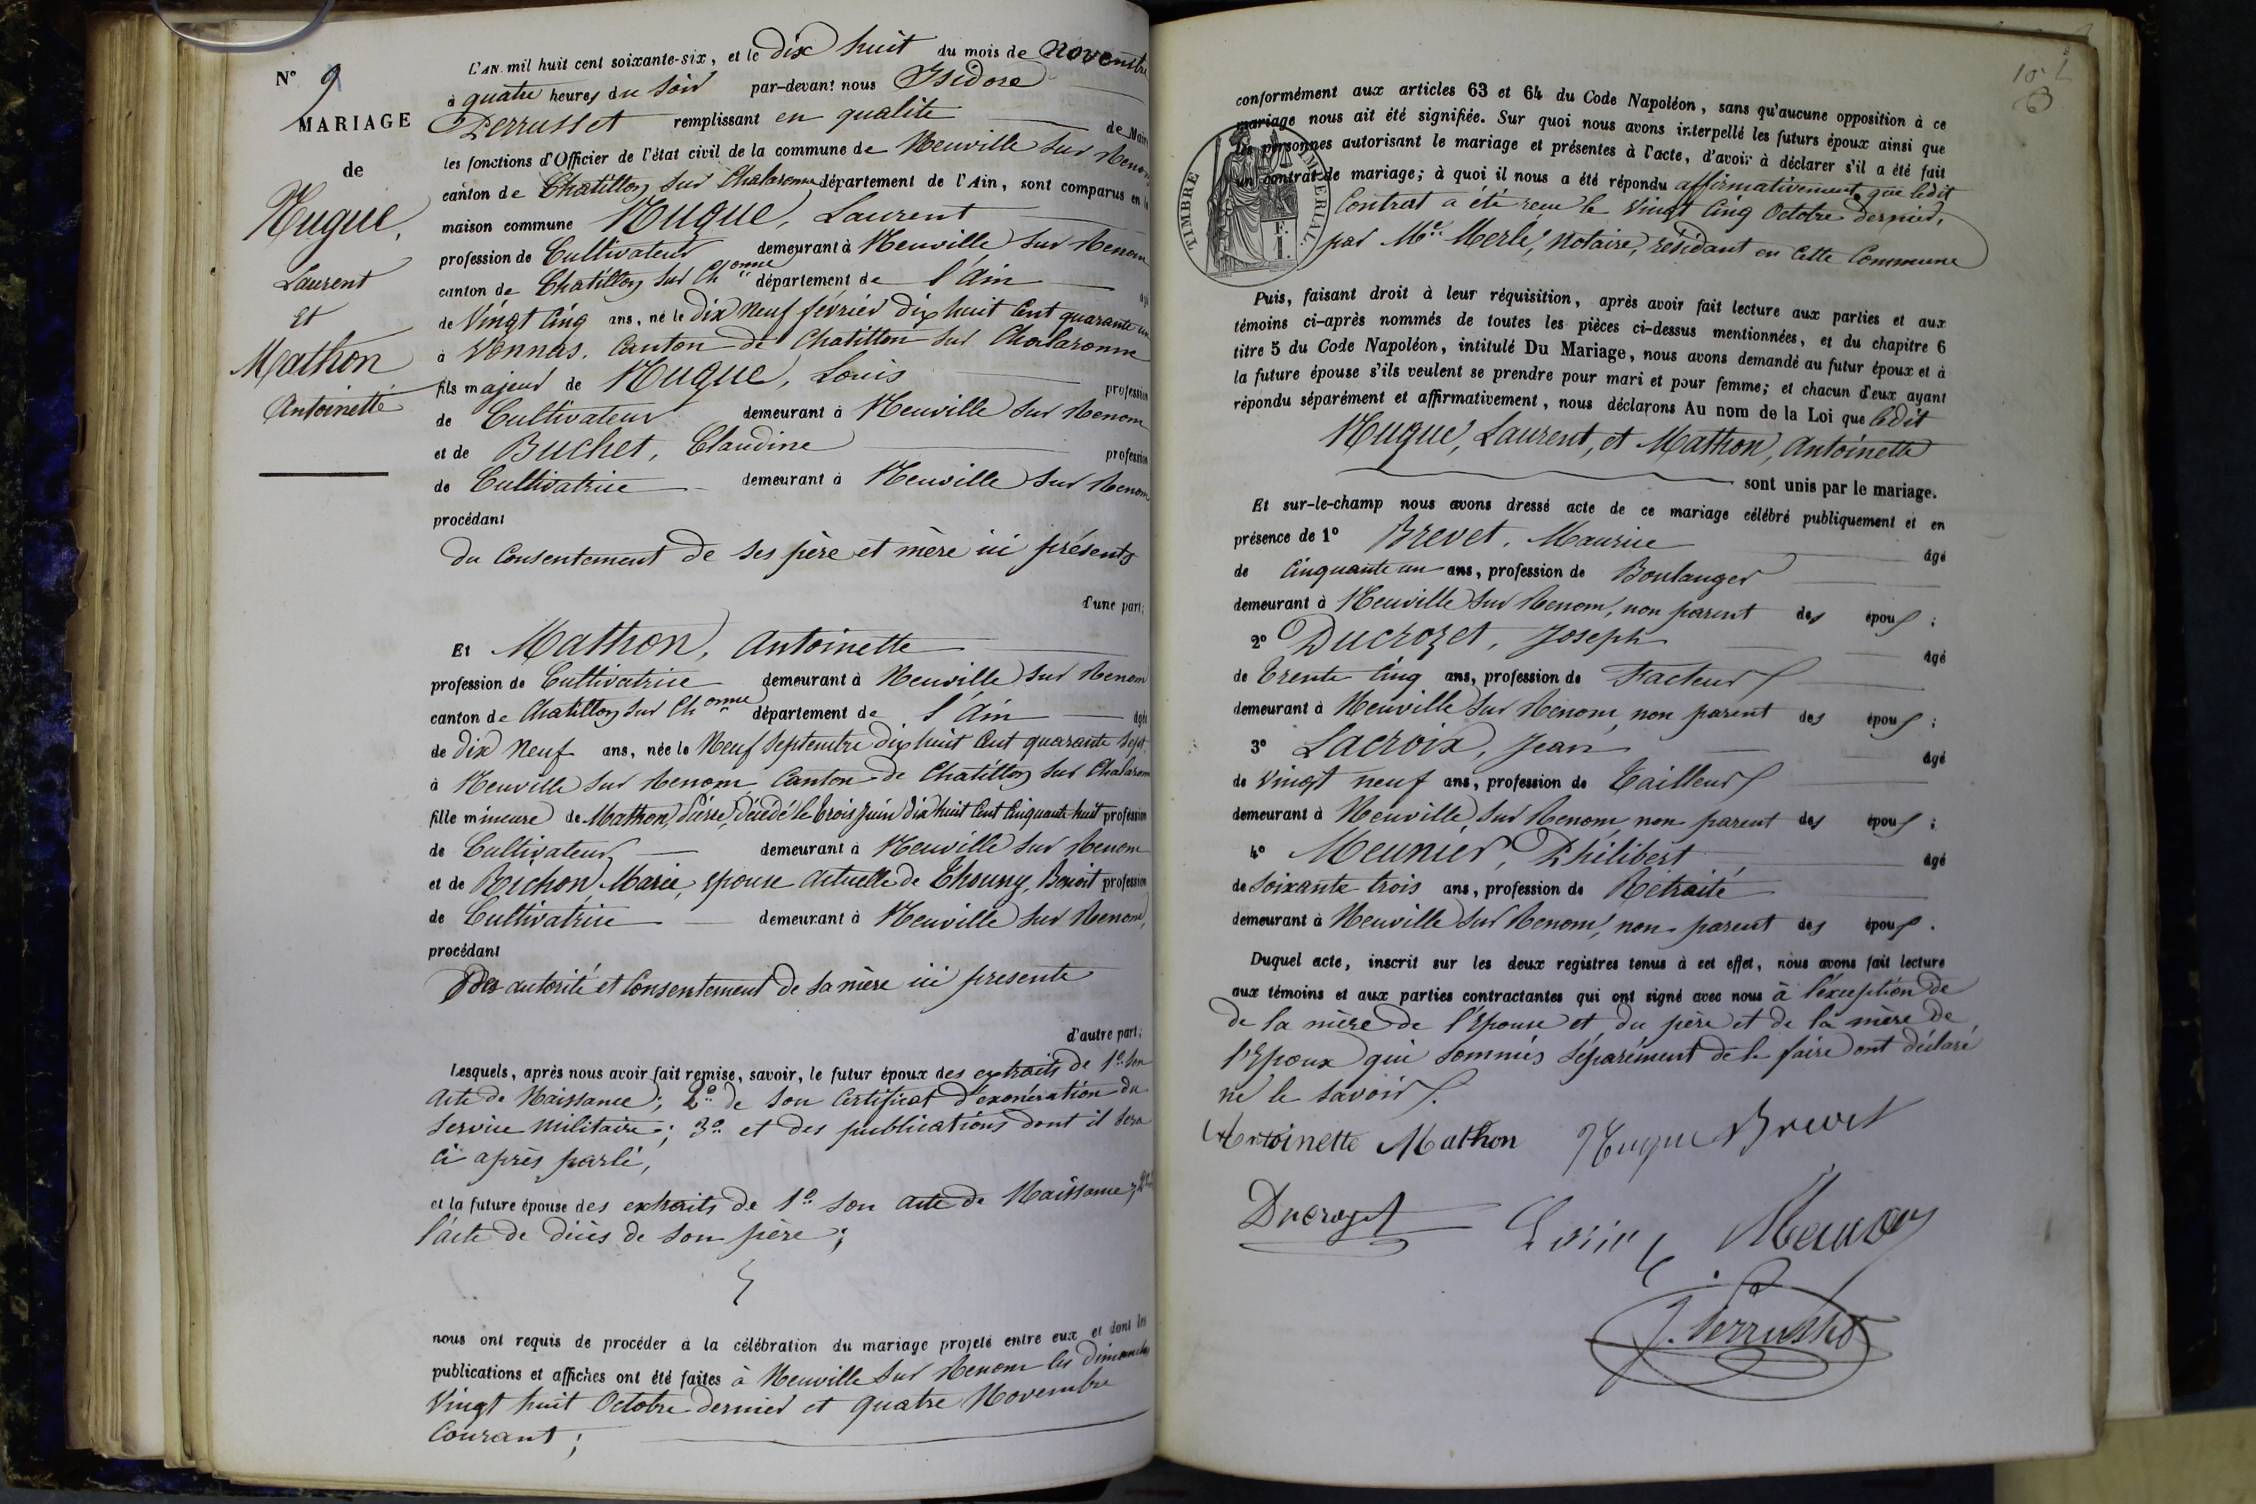 N° 9
MARIAGE
de
Hugue,
Laurent
et
Mathon
Antoinette
L'AN mil huit cent soixante-six, et le dix huit du mois de novembre
à quatre heures du soir par-devant nous Isidore
Perrusset remplissant en qualité de Maire
les fonctions d'Officier de l'état civil de la commune de Neuville sur Renom
canton de Chatillon sur Chalaronne département de l'Ain, sont comparus en la
maison commune Hugue, Laurent
profession de Cultivateur demeurant à Neuville sur Renom
canton de Chatillon sur Chonne département de l'Ain âgé
de Vingt Cinq ans, né le dix neuf février dix huit Cent quarante un
à Vonnas, Canton de Chatillon sur Chalaronne
fils majeur de Hugue, Louis profession
de Cultivateur demeurant à Neuville sur Renom
et de Buchet, Claudine profession
de Cultivatrice demeurant à Neuville sur Renom
procédant
du Consentement de ses père et mère ici présents
d'une part;
Et Mathon, Antoinette
profession de Cultivatrice demeurant à Neuville sur Renom
canton de Chatillon sur Chonne département de l'Ain âgée
de dix Neuf ans, née le Neuf Septembre dix huit Cent quarante Sept
à Neuville sur Renom Canton de Chatillon sur Chalaronne
fille mineure de Mathon, Pierre, Décédé le trois Juin dix huit Cent Cinquante-huit profession
de Cultivateur demeurant à Neuville sur Renom
et de Bichon, Marie, épouse actuelle de Thouny, Benoit profession
de Cultivatrice demeurant à Neuville sur Renom,
procédant
des autorité et Consentement de sa mère ici presente
d'autre part;
Lesquels, après nous avoir fait remise, savoir, le futur époux des extraits de 1° son
Acte de Naissance; 2° de son Certificat d'exonération du
Service Militaire; 3° et des publications dont il sera
ci après parlé,
et la future épouse des extraits de 1° son acte de Naissance; 2°
l'acte de décès de son père;
nous ont requis de procéder à la célébration du mariage projeté entre eux et dont les
publications et affiches ont été faites à Neuville sur Renom les dimanches
Vingt huit Octobre dernier et quatre Novembre
Courant;
conformément aux articles 63 et 64 du Code Napoléon, sans qu'aucune opposition à ce
mariage nous ait été signifiée. Sur quoi nous avons interpellé les futurs époux ainsi que
les personnes autorisant le mariage et présentes à l'acte, d'avoir à déclarer s'il a été fait
un contrat de mariage; à quoi il nous a été répondu affirmativement, que ledit
Contrat a été reçu le Vingt Cinq Octobre dernier,
par Me Merle, Notaire, résidant en Cette Commune
TIMBRE IMPERIAL.
E. F.
I.
Puis, faisant droit à leur réquisition, après avoir fait lecture aux parties et aux
témoins ci-après nommés de toutes les pièces ci-dessus mentionnées, et du chapitre 6
titre 5 du Code Napoléon, intitulé Du Mariage, nous avons demandé au futur époux et à
la future épouse s'ils veulent se prendre pour mari et pour femme; et chacun d'eux ayant
répondu séparément et affirmativement, nous déclarons Au nom de la Loi que ledit
Hugue, Laurent, et Mathon, Antoinette
sont unis par le mariage.
Et sur-le-champ nous avons dressé acte de ce mariage célébré publiquement et en
présence de 1° Brevet, Maurice âgé
de Cinquante un ans, profession de Boulanger
demeurant à Neuville sur Renom, non parent des époux;
2° Ducrozet, Joseph âgé
de Trente Cinq ans, profession de Facteur
demeurant à Neuville sur Renom, non parent des époux;
3° Lacroix, Jean âgé
de Vingt neuf ans, profession de Tailleur
demeurant à Neuville sur Renom, non parent des époux;
4° Meunier, Philibert âgé
de Soixante trois ans, profession de Retraité
demeurant à Neuville sur Renom, non parent des époux.
Duquel acte, inscrit sur les deux registres tenus à cet effet, nous avons fait lecture
aux témoins et aux parties contractantes qui ont signé avec nous à l'exception de
de la mère de l'Epouse et du père et de la mère de
l'Epoux qui sommés séparément de le faire ont déclaré
ne le savoir.
Antoinette Mathon Hugue Brevet
Ducrozet
J. Perrusset